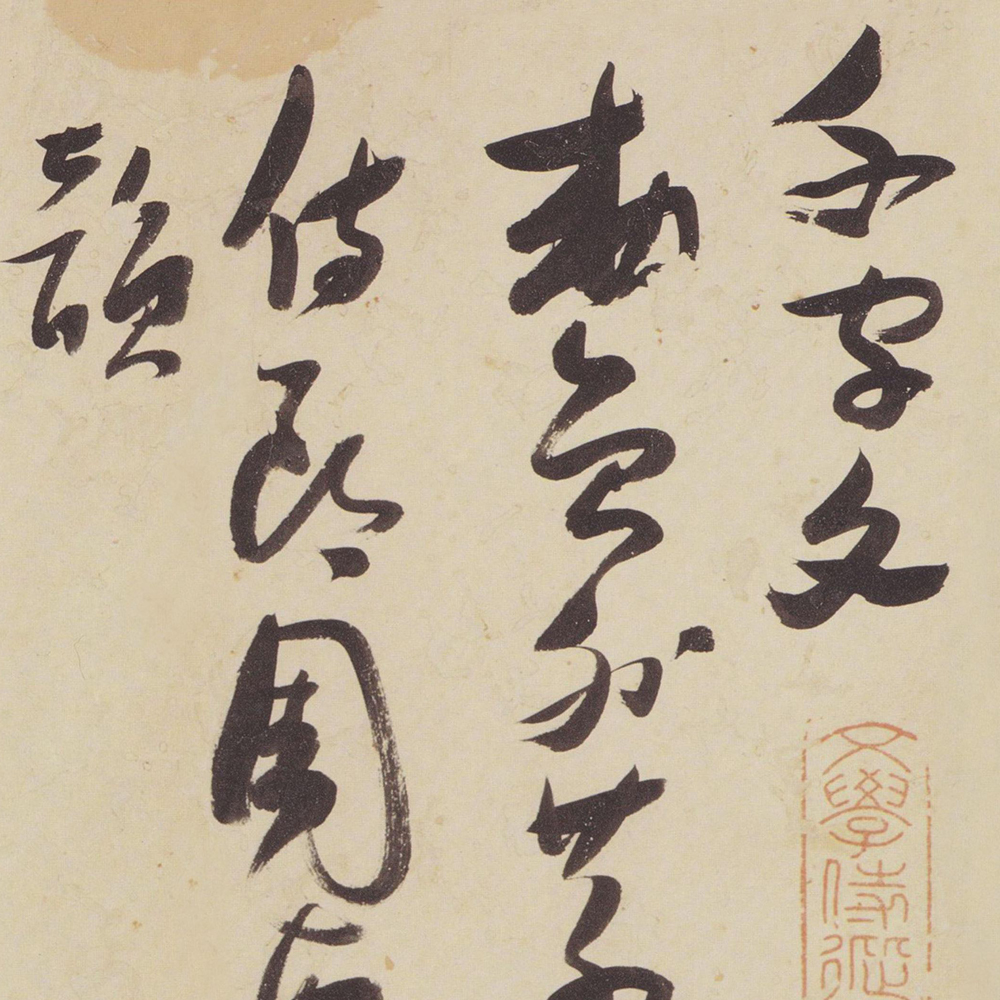 千字文
勅員外散
侍郎周
韻
文學侍從